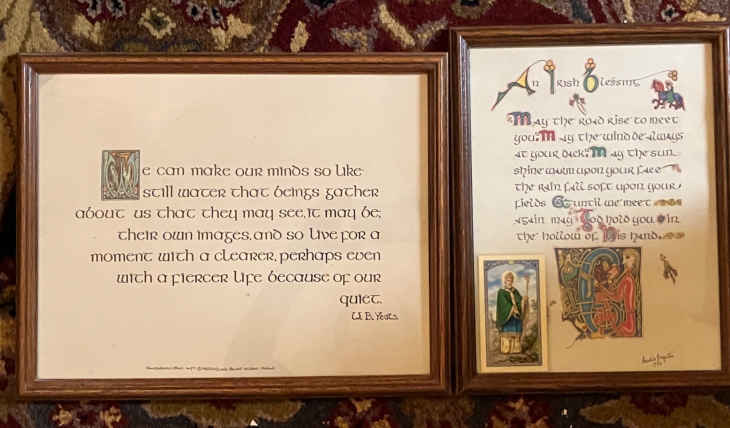 We can make our minds so like
still water that beings gather
about us that they may see, it may be,
their own images, and so live for a
moment with a clearer, perhaps even
with a fiercer life because of our
quiet.
W. B. Yeats.
An Irish Blessing
May the road rise to meet
you. May the wind be always
at your back. May the sun
shine warm upon your face
the rain fall soft upon your
fields & until we meet
again may God hold you in
the hollow of His hand.